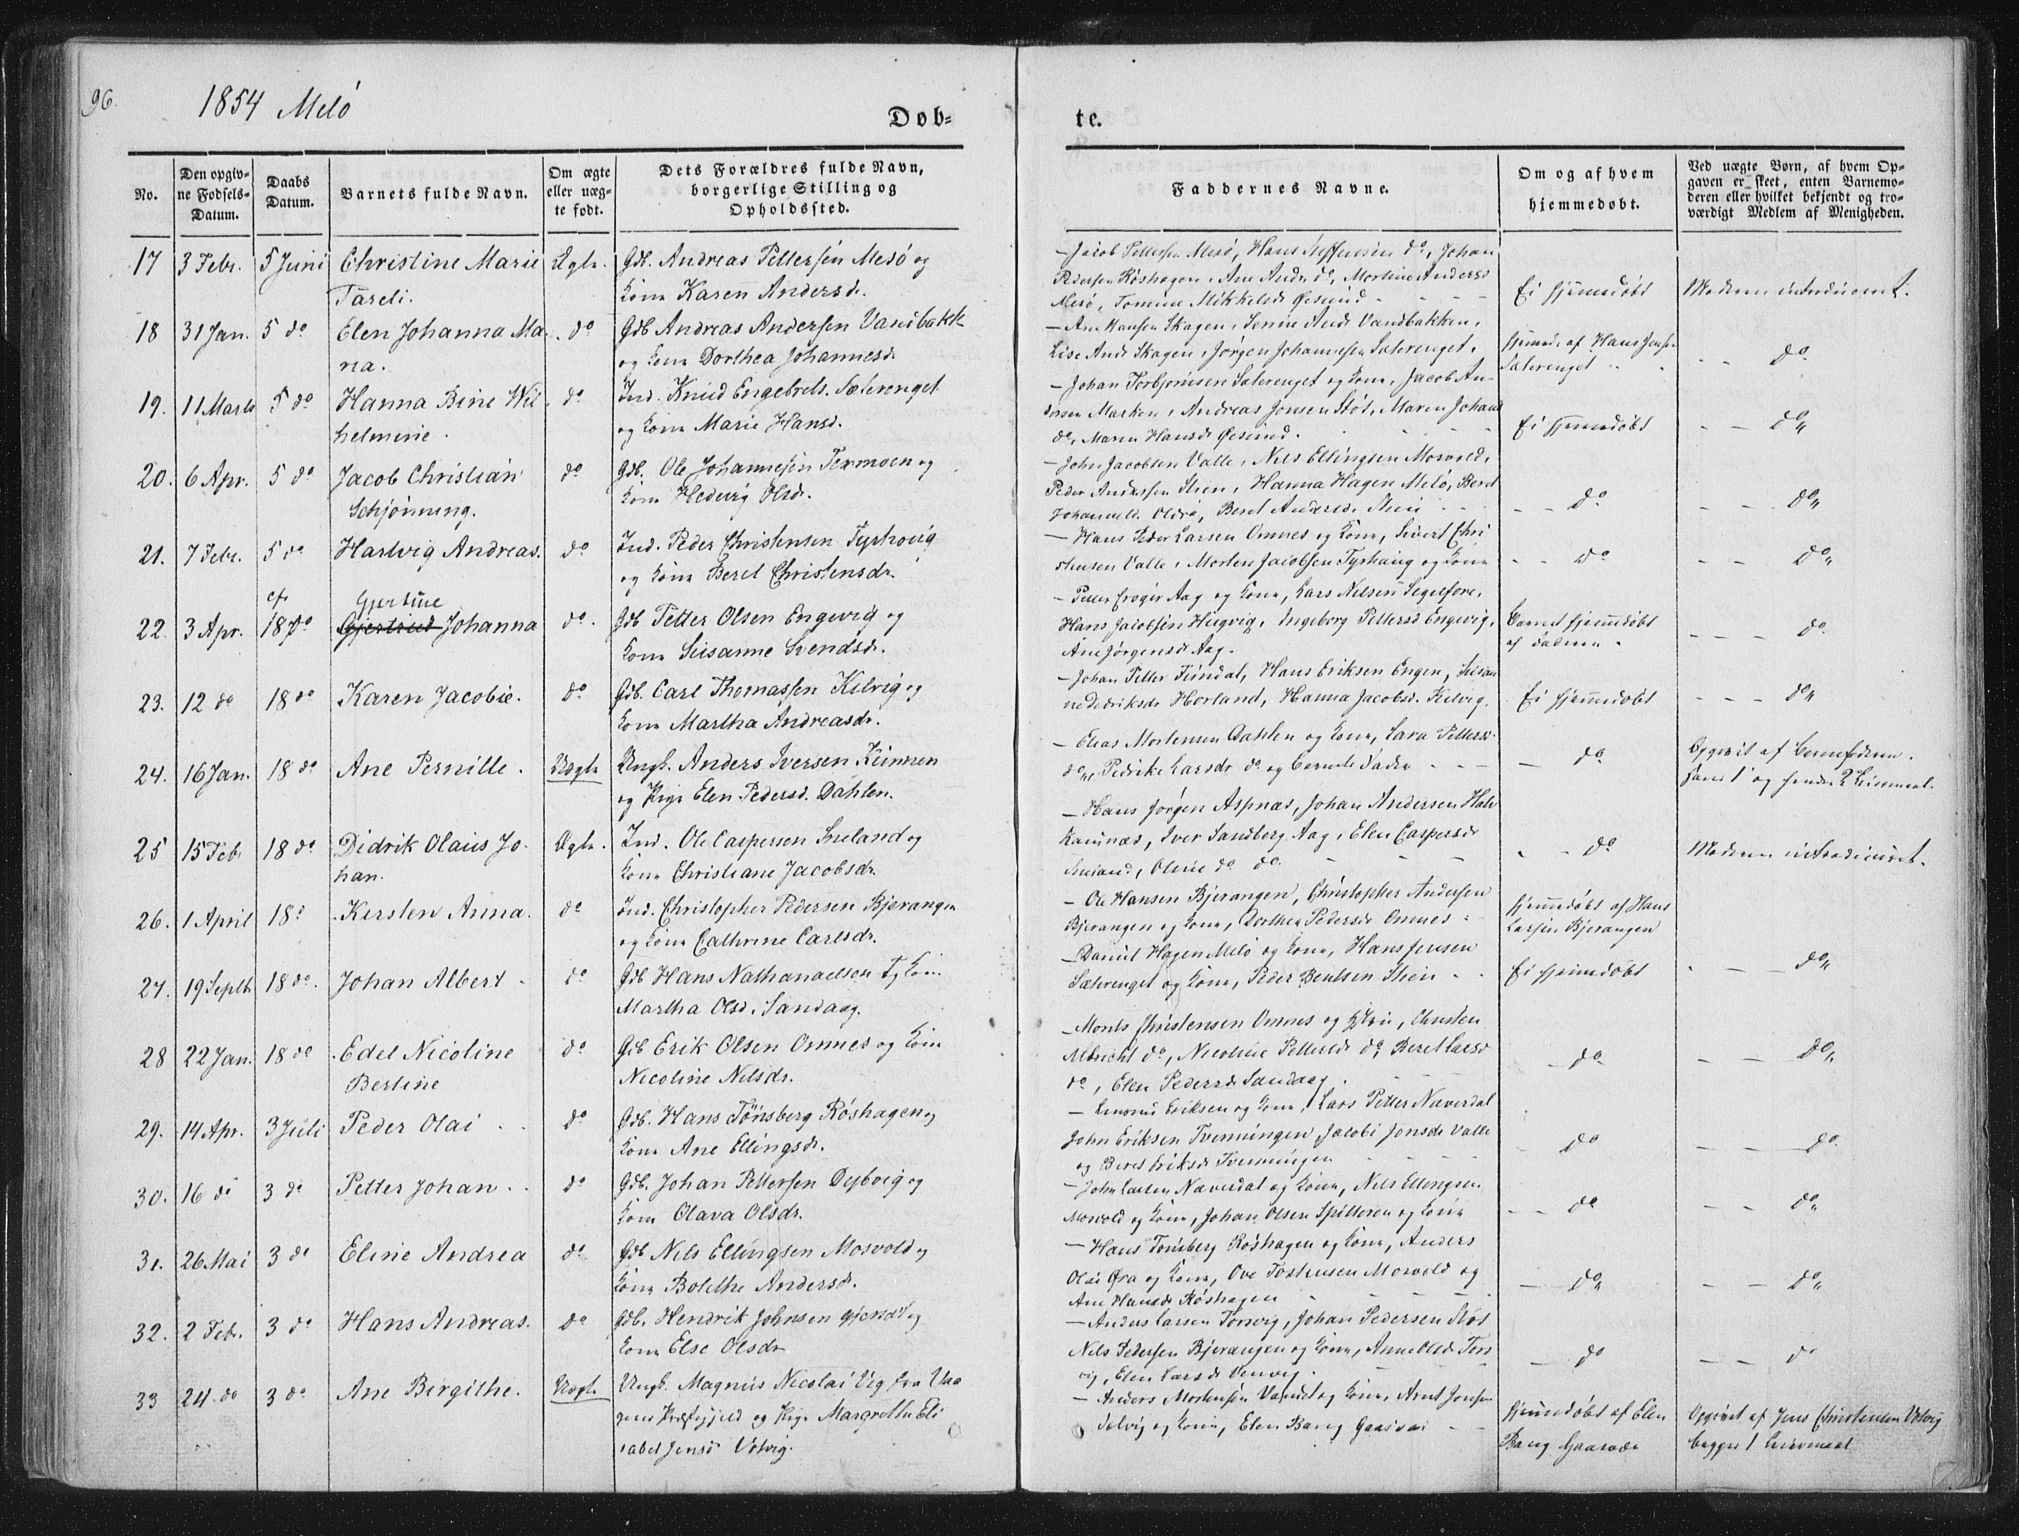 96.
1854 Melö
Døb-
te.
No.
Den opgiv-
ne Fødsels-
Datum.
Daabs
Datum.
Barnets fulde Navn.
Om ægte
eller uæg-
te født.
Dets Forældres fulde Navn,
borgerlige Stilling og
Opholdssted.
Faddernes Navne.
Om og af hvem
hjemmedøbt.
Ved uægte Børn, af hvem Op-
gaven er skeet, enten Barnemo-
deren eller hvilket bekjendt og tro-
værdigt Medlem af Menigheden.
17 3 Febr. 5 Juni Christine Marie Ægte. Gdb. Andreas Pettersen Mesö og
Tareli. Kone Karen Andersd.
— Jacob Pettersen Mesö, Hans Steffensen do, Johan
Pedersen Röshagen, Ane Andr. do, Martine Andersd
Mesö, Tomine Mikkelsd Øesund
Ei hjemedöbt Moderen introduceret.
18 31 Jan. 5 do Elen Johanna Ma- do Gdb Andreas Andersen Vandbakk
ria. og Kone Dorthea Johannesd.
— Ane Hansen Skagen, Vandbakken,
Lise Andr Skagen, Jörgen Johannesen Saterenget.
hjemed. af Hans Jensen
Saterenget do
19. 11 Marts 5 do Hanna Bine Wil- do Ind. Knud Engebrets. Sæterenget
helmine. og Kone Marie Hansd.
— Johan Torbjörnsen Saterenget og Kone, Jacob An-
dersen Marken, Andreas Jonsen Stöt, Maren Johansd
do, Maren Hansd Øesund.
Ei hjemmedöbt do
20. 6 Apr. 5 do Jacob Christian do Gdb. Ole Johannesen Termoen og
Schjönning. Kone Hedvig Olsdr.
— John Jacobsen Valle, Nils Ellingsen Mosvold,
Peder Andersen Stien, Hanna Hagen Melö, Beret
Johannesd. Oldra, Beret Andersd. Stien
do do
21. 7 Febr. 5 do Hartvig Andreas. do Ind. Peder Christensen Tyshoug
og Kone Beret Christensdr.
— Hans Peder Larsen Omnes og Kone, Sivert Chri
stensen Valle, Morten Jacobsen Tyshaug og Kone
do do
22. 3 Apr. 18 do Gjertine Gjertrud Johanna do. Gdb Petter Olsen Engevig og
Kone Susanne Svendsdr.
— Petter Aag og Kone, Lars Nilsen Segelfore,
Hans Jacobsen Hugvig, Ingeborg Pettersd Engevig,
Ane Jörgensd Aag.
Barnet hjemmdöbt
af Faderen. do.
23. 12 do 18 do Karen Jacobie. do Gdb. Carl Thomassen Kilvig og
Kone Martha Andreasdr.
— Johan Petter Fondal, Hans Eriksen Engen, Susan
ne Dedriksdr Horland, Hanna Jacobsd. Kilvig.
Ei hjemmedöbt do
24. 16 Jan. 18 do Ane Pernille. Uægte Ungk. Anders Iversen Kunnen
og Pige Elen Pedersd. Dahlen.
— Elias Mortensen Dahlen og Kone, Lara Petters.
do, Pedrike Larsdr do og Barnets Fader
do Opgivet af Barnefaderen.
hans 1 og hendes 2 Leiermaal.
25 15 Feb 18 do Didrik Olaus Jo- Ægte. Ind. Ole Caspersen Sneland og
han. Kone Christiane Jacobsdr.
— Hans Jörgen Aspnæs, Johan Andersen Hals
Kaninæs, Iver Sandberg Aag, Elen Caspersd
Sneland, Oline do do.
do Moderen introduceret.
26. 1 April 18 Kersten Anna. do Ind. Christopher Pedersen Bjerangen
og Kone Cathrine Carlsdr.
— Ole Hansen Bjerangen, Christopher Andersen
Bjerangen og Kone, Dorthea Pedersd Omnes
hjemmedöbt af Hans
Larsen Bjerangen
27. 19 Septb. 18 do. Johan Albert do Gdb Hans Nathanaelsen og Kone
Martha Olsd. Sandaag.
— Daniel Hagen Melö og Kone, Hans Jensen
Sæterenget og Kone, Peder Bentsen Stien
Ei hjemedöbt do
28 22 Jan. 18 do Edel Nicoline do Gdb Erik Olsen Omnes og Kone
Bertine Nicoline Nilsdr.
— Monts Christensen Omnes og Kone, Christen
Albricht do, Nicoline Pettersd do, Beret Larsd
do, Elen Pedersd Sandaag.
do do
29. 14 Apr. 3 Juli Peder Olai do Gdb. Hans Tönsberg Röshagen og
Kone Ane Ellingsdr.
— Eriksen og Kone, Lars Petter Næverdal
John Eriksen Tvenningen, Jacobi Jonsdr Valle
og Beret Eriksd Tvenningen
do do.
30. 16 do 3 do Petter Johan do Gdb. Johan Pettersen Dybvig og
Kone Olava Olsdr.
— John Larsen Næverdal og Kone, Nils Ellingsen
Mosvold og Kone, Johan Olsen Spilderen og Kone
do do
31. 26 Mai 3 do Eline Andrea do Gdb Nils Ellingsen Mosvold og
Kone Bolethe Andersdr.
— Hans Tönsberg Röshagen og Kone, Anders
Olai Öra og Kone, Ove Tostensen Mosvold og
Ane Hansd. Röshagen
do do
32. 2 Feb. 3 do Hans Andreas. do Gdb. Hendrik Johnsen Gjersdt og
Kone Else Olsdr
— Anders Larsen Torsvig, Johan Pedersen Stöt
Nils Pedersen Bjerangen og Kone, Anne Olsd Tors
vig, Elen Larsdr Venvig.
do do
33 24. do 3 do Ane Birgithe. Uægte Ungk. Magnus Nicolai Vig fra Vaa
gens Præstegjeld og Pige Margrethe Eli
sabet Jensd Vokvig.
— Anders Mortensen Vandet og Kone, Arnt Jensen
Selvig og Kone, Elen Bang Gaasvær
hjemmedöbt af Elen
Bang Gaasvær
Opgivet af Jens Christensen Vokvig
begges 1 Leiermaal